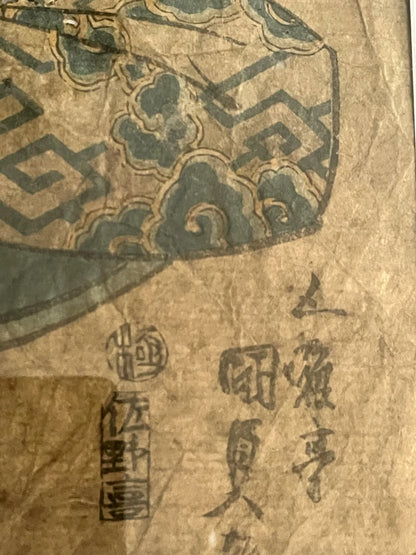 五渡亭
國貞
極
佐野喜